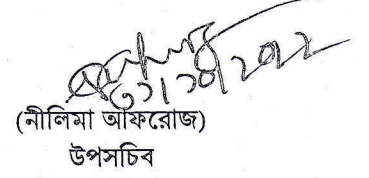 (নীলিমা আফরোজ)
উপসচিব